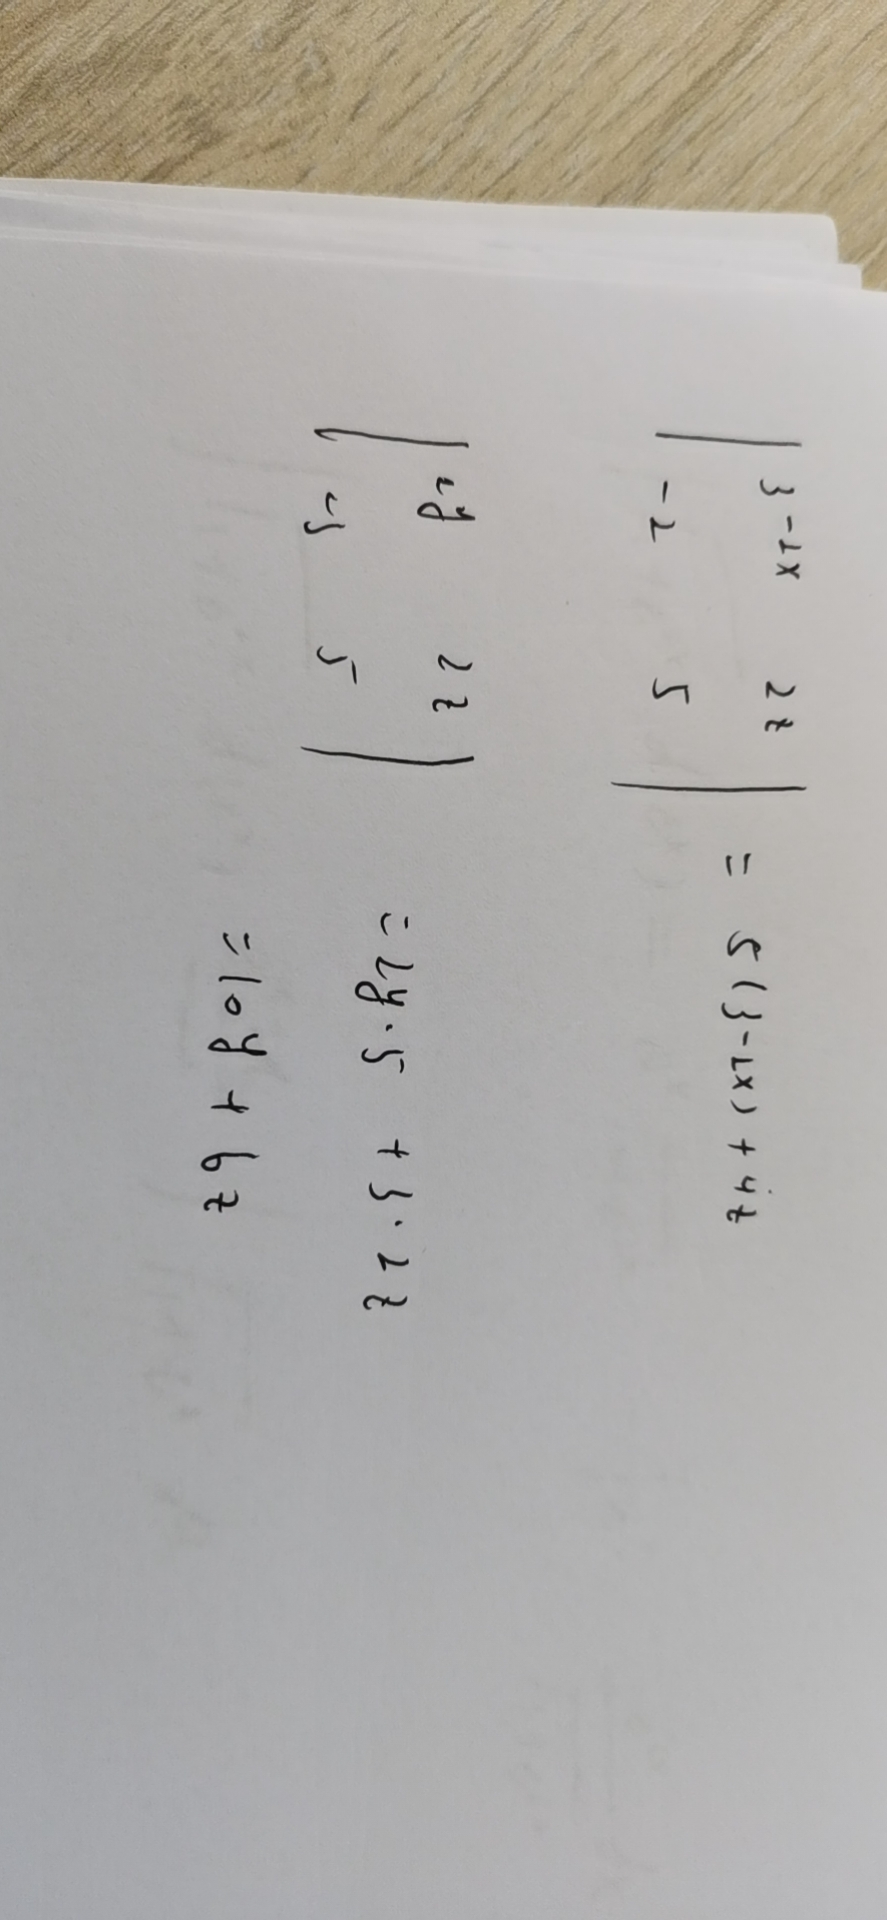 | 3-2x 2z |
| -2 5 | = 5(3-2x)+4z
| 2y 2z |
| -3 5 | = 2y·5 + 3·2z
= 10y + 6z